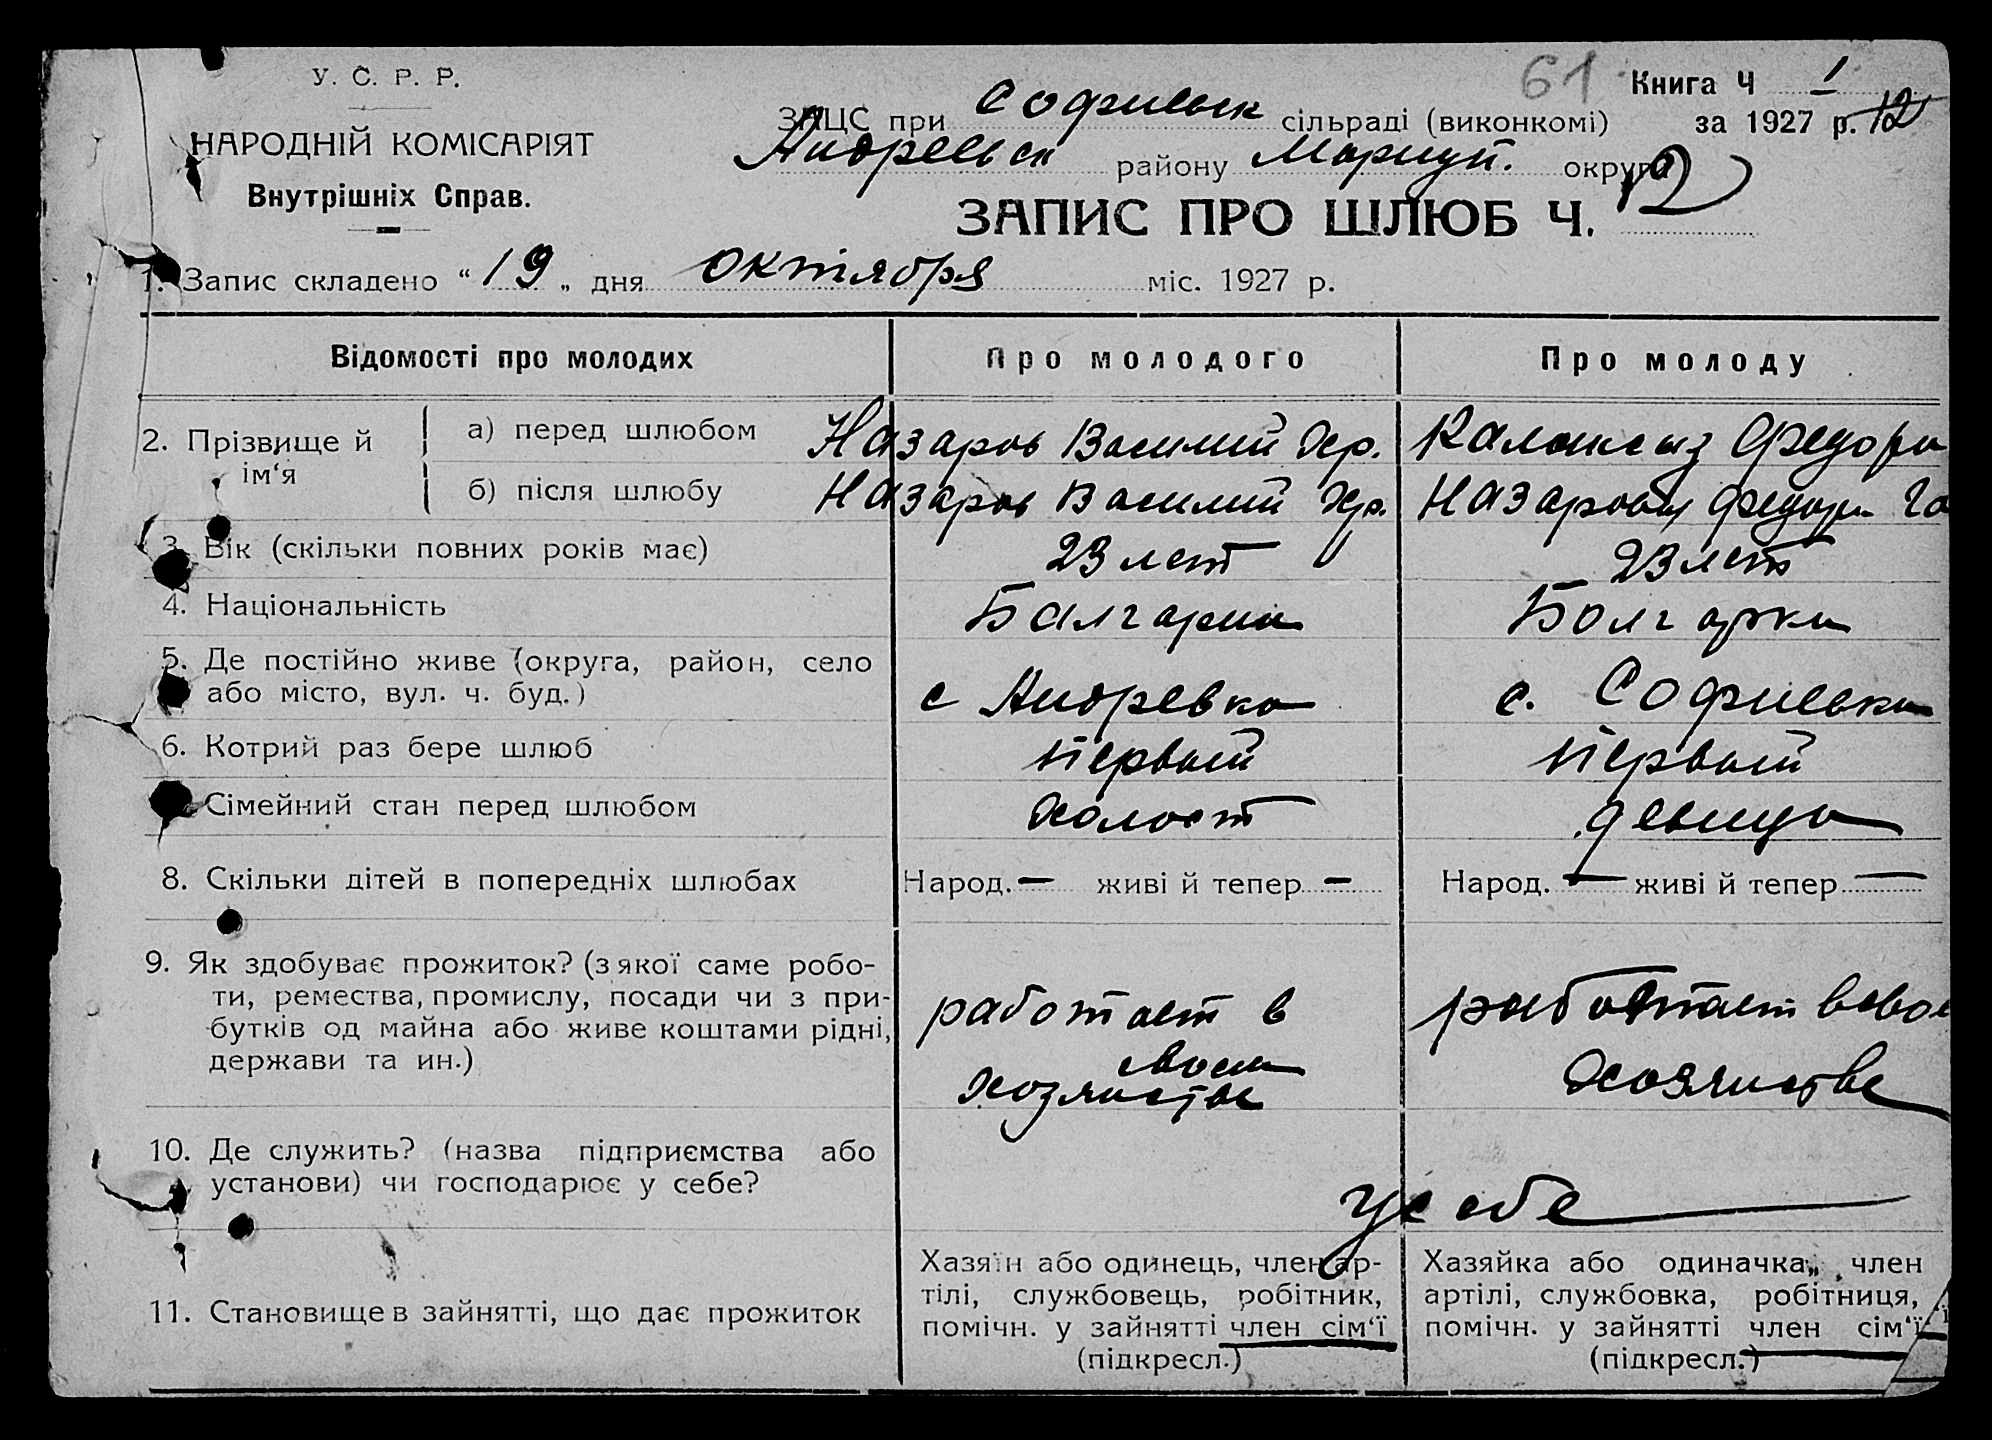 61 Книга Ч I
У. С. Р. Р.
ЗАЦС при Софиевск сільраді (виконкомі) за 1927 р. 12
НАРОДНІЙ КОМІСАРІЯТ
Андреевск району Мариуп. округи
Внутрішніх Справ.
ЗАПИС ПРО ШЛЮБ Ч. 12
1. Запис складено “19„ дня октября міс. 1927 р.
Відомості про молодих Про молодого Про молоду
2. Прізвище й ім‘я
а) перед шлюбом Назаров Василий Хр. Федори
б) після шлюбу Назаров Василий Хр. Назарова Федора Го
3. Вік (скільки повних років має) 23 лет 23 лет
4. Національність Балгарин Болгарка
5. Де постійно живе (округа, район, село
або місто, вул. ч. буд.) с Андревка с. Софиевка
6. Котрий раз бере шлюб первый первый
Сімейний стан перед шлюбом Холост девица
8. Скільки дітей в попередніх шлюбах Народ. — живі й тепер — Народ. — живі й тепер —
9. Як здобуває прожиток? (з якої саме робо-
ти, ремества, промислу, посади чи з при-
бутків од майна або живе коштами рідні,
держави та ин.)
работает в
своем
хозяистве
работает в свое
хозяистве
10. Де служить? (назва підприємства або
установи) чи господарює у себе?
у себе
11. Становище в зайнятті, що дає прожиток
Хазяїн або одинець, член ар-
тілі, службовець, робітник,
помічн. у зайнятті член сім‘ї
(підкресл.)
Хазяйка або одиначка, член
артілі, службовка, робітниця,
помічн. у зайнятті член сім‘ї
(підкресл.)